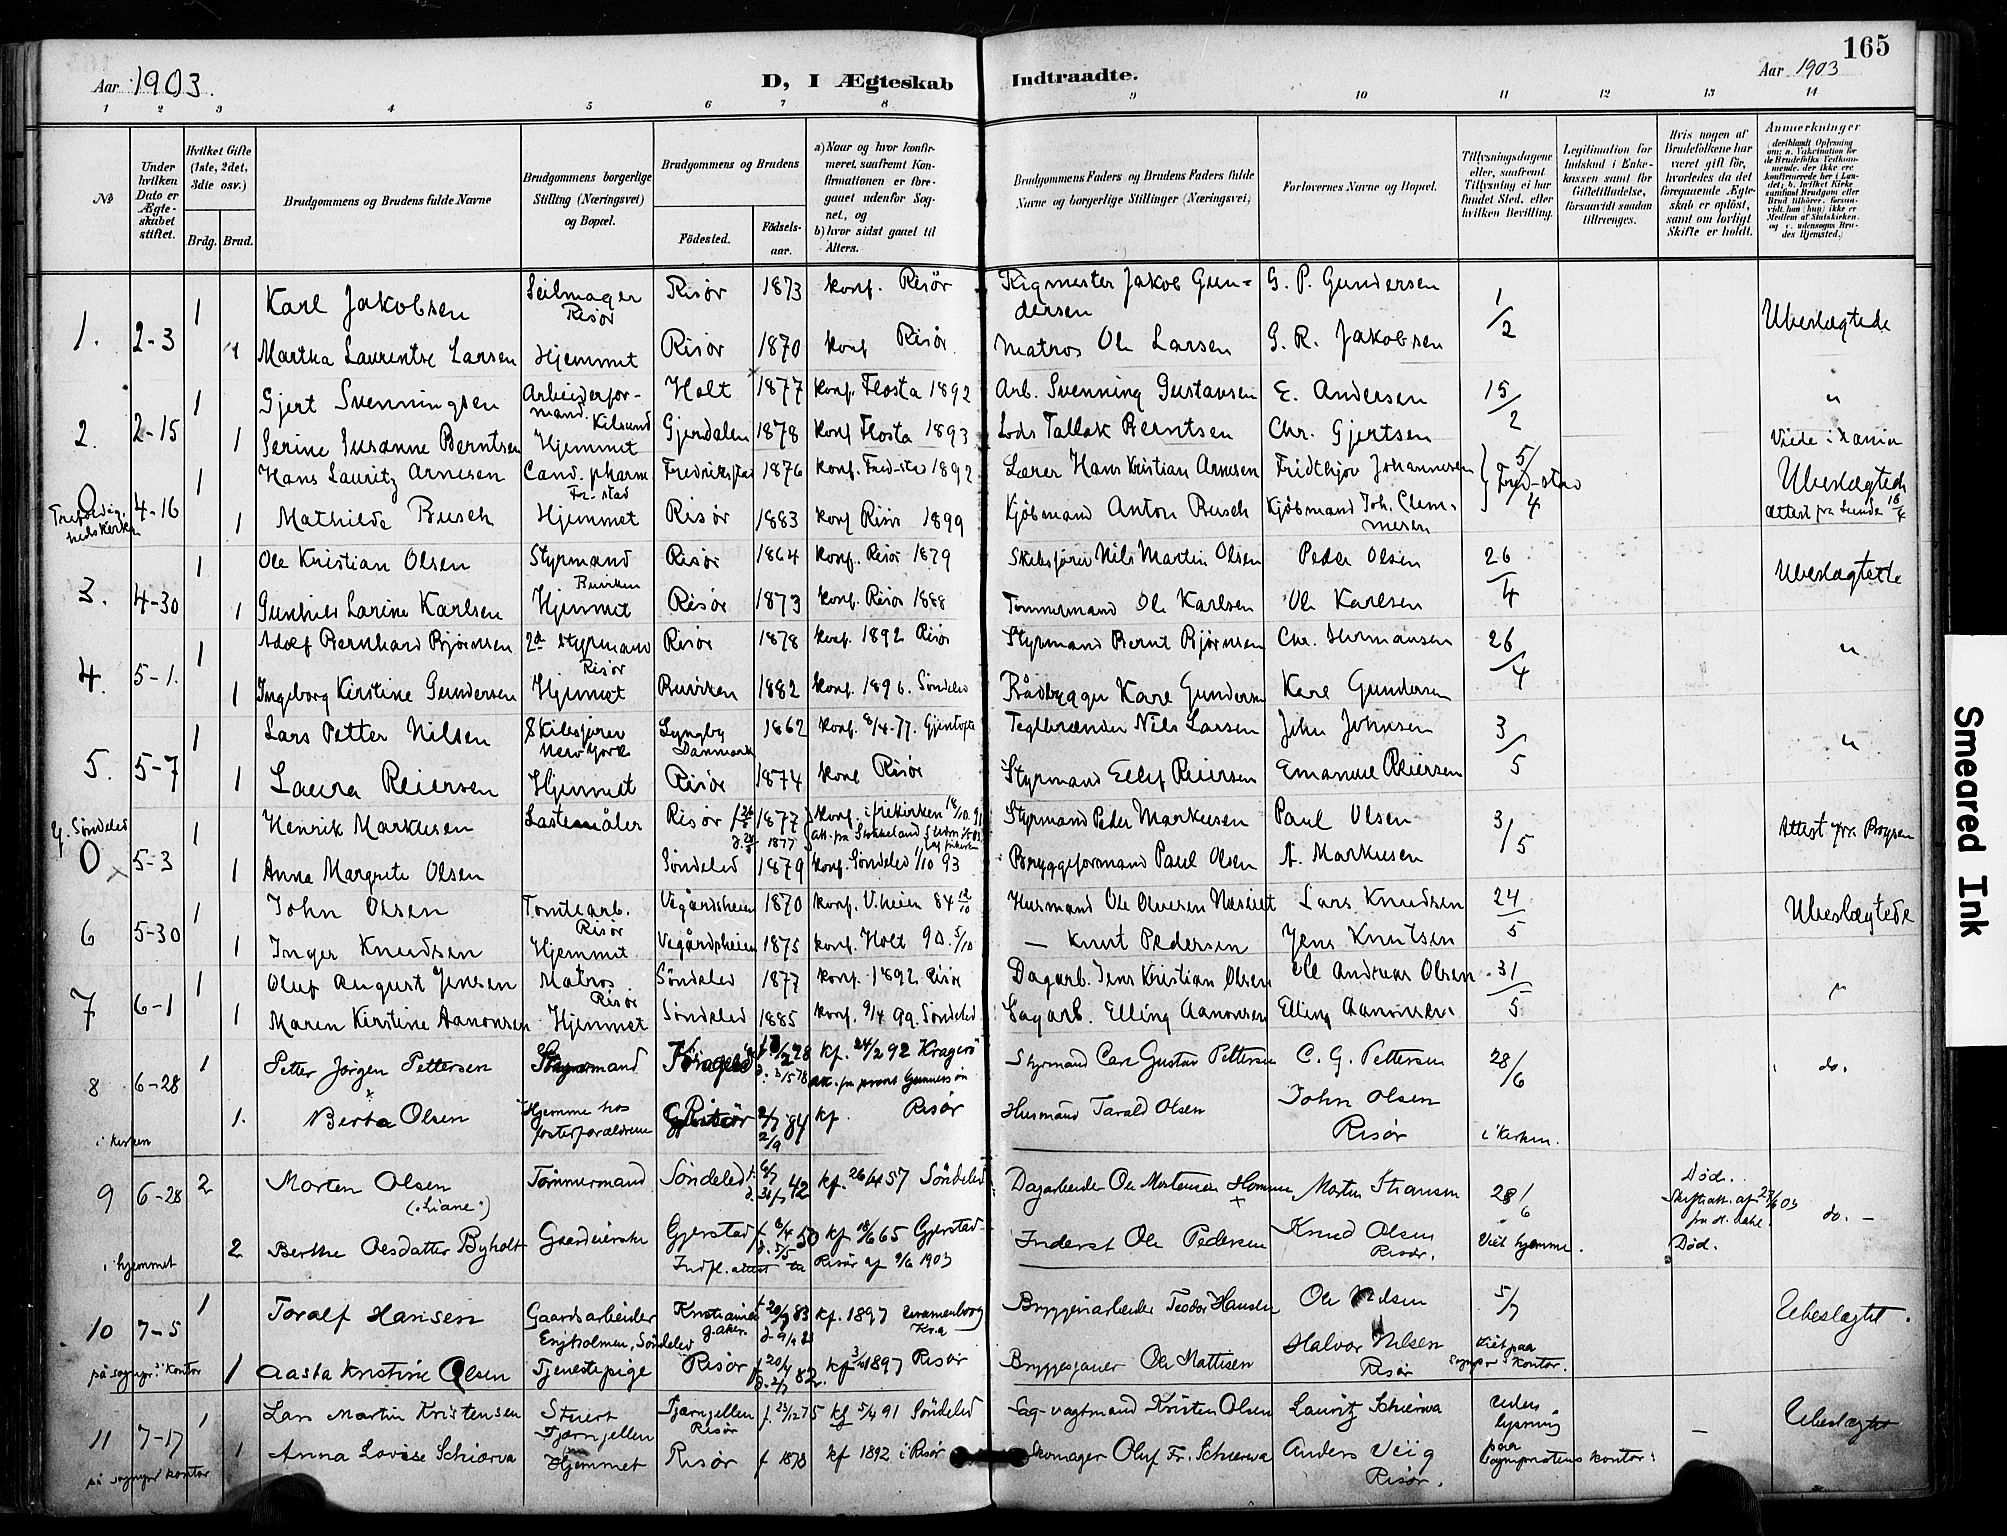 165
Aar 1903.
D, I Ægteskab Indtraadte.
Aar 1903
1 2 3 4 5 6 7 8 9 10 11 12 13 14
№
Under hvilken Dato er Ægteskabet stiftet.
Hvilket Gifte (1ste, 2det, 3die osv.)
Brdg. Brud.
Brudgommens og Brudens fulde Navne
Brudgommens borgerlige Stilling (Næringsvei) og Bopæl.
Brudgommens og Brudens
Födested. Födselsaar.
a) Naar og hvor konfirmeret, saafremt Konfirmationen er foregaaet udenfor Sognet, og
b) hvor sidst gaaet til Alters.
Brudgommens Faders og Brudens Faders fulde Navne og borgerlige Stillinger (Næringsvei)
Forlovernes Navne og Bopæl.
Tillysningsdagene eller, saafremt Tillysning ei har fundet Sted, efter hvilken Bevilling.
Legitimation for Indskud i Enkekassen samt for Giftetilladelse, forsaavidt saadan tiltrænges.
Hvis nogen af Brudefolkene har været gift för, hvorledes da det foregaaende Ægteskab er oplöst, samt om lovligt Skifte er holdt.
Anmærkninger
1. 2-3 1 Karl Jakobsen Seilmager Risør Risør 1873 konf. Risör Rigmester Jakob Gundersen G. P. Gundersen 1/2 Ubeslægtede
1 Martha Laurentse Larsen Hjemmet Risør 1870 konf Risør. Matros Ole Larsen G. R. Jakobsen
2. 2-15 1 Gjert Svenningsen Arbeiderformand. Kilsund Holt 1877 konf. Flosta 1892 Arb. Svenning Gustavsen E. Andersen 15/2 "
1 Serine Susanne Berntsen Hjemmet Gjerdalen 1878 konf Flosta 1893 Lods Tallak Berntsen Chr. Gjertsen
0 Trefoldighedskirken 4-16 1 Hans Lauritz Arnesen Cand. pharm Fr-stad Fredrikstad 1876 konf. Fred-stad 1892 Lærer Hans Kristian Arnesen Fridthjov Johannesen 5/4 Fred-stad Ubeslægtede
1 Mathilde Busch Hjemmet Risør 1883 konf Risør 1899 Kjöbmand Anton Busch Kjöbmand Joh. Clemmesen
3. 4-30 1 Ole Kristian Olsen Styrmand Buviken Risør 1864 konf. Risør 1879 Skibsfører Nils Martin Olsen Peder Olsen 26/4 Ubeslægtede
1 Gunhild Larine Karlsen Hjemmet Risør 1873 konf. Risør 1888 Tømmermand Ole Karlsen Ole Karlsen
4. 5-1. 1 Adolf Bernhard Bjørnsen 2den Styrmand Risør Risør 1878 konf. 1892 Risør Styrmand Bernt Bjørnsen Chr. Hermansen 26/4 "
1 Ingeborg Kirstine Gundersen Hjemmet Buviken 1882 konf. 1896. Söndeled Baadbygger Karl Gundersen Karl Gundersen
5. 5-7 1 Lars Petter Nilsen Skibsfører New York Lyngby Danmark 1862 konf. 8/4-77. Gjentofte Teglbrænder Nils Larsen John Johnsen 3/5 "
1 Laura Reiersen Hjemmet Risør 1874 konf Risør Styrmand Ellef Reiersen Emanuel Reiersen
0 Söndeled 5-3 1 Henrik Markusen Lastemåler Risør 1877 konf. i frikirken 18/10 91 Styrmand Peder Markusen Paul Olsen 3/5 Attest fra Boysen
1 Anna Margrete Olsen Söndeled 1879 konf. Söndeled 1/10 93 Bryggeformand Paul Olsen A. Markusen
6 5-30 1 John Olsen Tomtearb. Risør Vegårdsheien 1870 konf. V.heien 84 12/10 Husmand Ole Olversen Lars Knudsen 24/5 Ubeslægtede
1 Inger Knudsen Hjemmet Vegårdsheien 1875 konf. Holt 90. 5/10 — Knut Pedersen Jens Knutsen
7 6-1 1 Oluf August Jensen Matros Risør Söndeled 1877 konf. 1892 Risør Dagarb. Jens Kristian Olsen Ole Andreas Olsen 31/5 "
1 Maren Kirstine Aanonsen Hjemmet Söndeled 1885 konf. 9/4 99. Söndeled Sagarb. Elling Aanonsen Elling Aanonsen.
8 i kirken 6-28 1 Petter Jörgen Pettersen kf. 24/2 92 Kragerö Styrmand Carl Gustav Pettersen C. G. Pettersen 28/6 do.
1. Berta Olsen Hjemme hos fosterforældrene 84 kf. Risør Husmand Tarald Olsen John Olsen Risör i kirken.
9 i hjemmet 6-28 2 Morten Olsen ("Liane") Tømmermand Söndeled 42 kf. 26/4 57 Söndeled Dagarbeider Ole Mortensen Homme Morten 28/6 Död. do. —
2 Berthe Olsdatter Byholt Gaardeierske Gjerstad 50 kf 18/6 65 Gjerstad Inderst Ole Pedersen Knud Olsen Risör. Viet hjemme. Död.
Indfl. attest fra Risör af 9/6 1903
10 på sognpr.s kontor 7-5 1 Toralf Hansen Gaardsarbeider Söndeled Kristiania 83 kf. 1897 Uranienborg Kr.a Bryggeriarbeider Teodor Hansen Ole Nilsen 5/7 Ubeslægtet.
1 Aasta Kristine Olsen Tjenestepige Risör 82. kf 1897 Risör Bryggesjauer Ole Mattisen Halvor Nilsen Risör Viet paa sognpr's kontor.
11 på sognpr kontor 7-17 1 Lars Martin Kristensen Stuert Fjærnjellen Risør 75 kf 5/4 91 Söndeled Sag-vagtmand Kristen Olsen Lauritz Schiørva uden lysning paa sognprestens kontor. Ubeslægtet
1 Anna Lovise Schiørva Hjemmet Risör f 1878 kf 1892 i Risör Skomager Oluf Fr. Schierva Anders Veiig Risör.
Smeared Ink